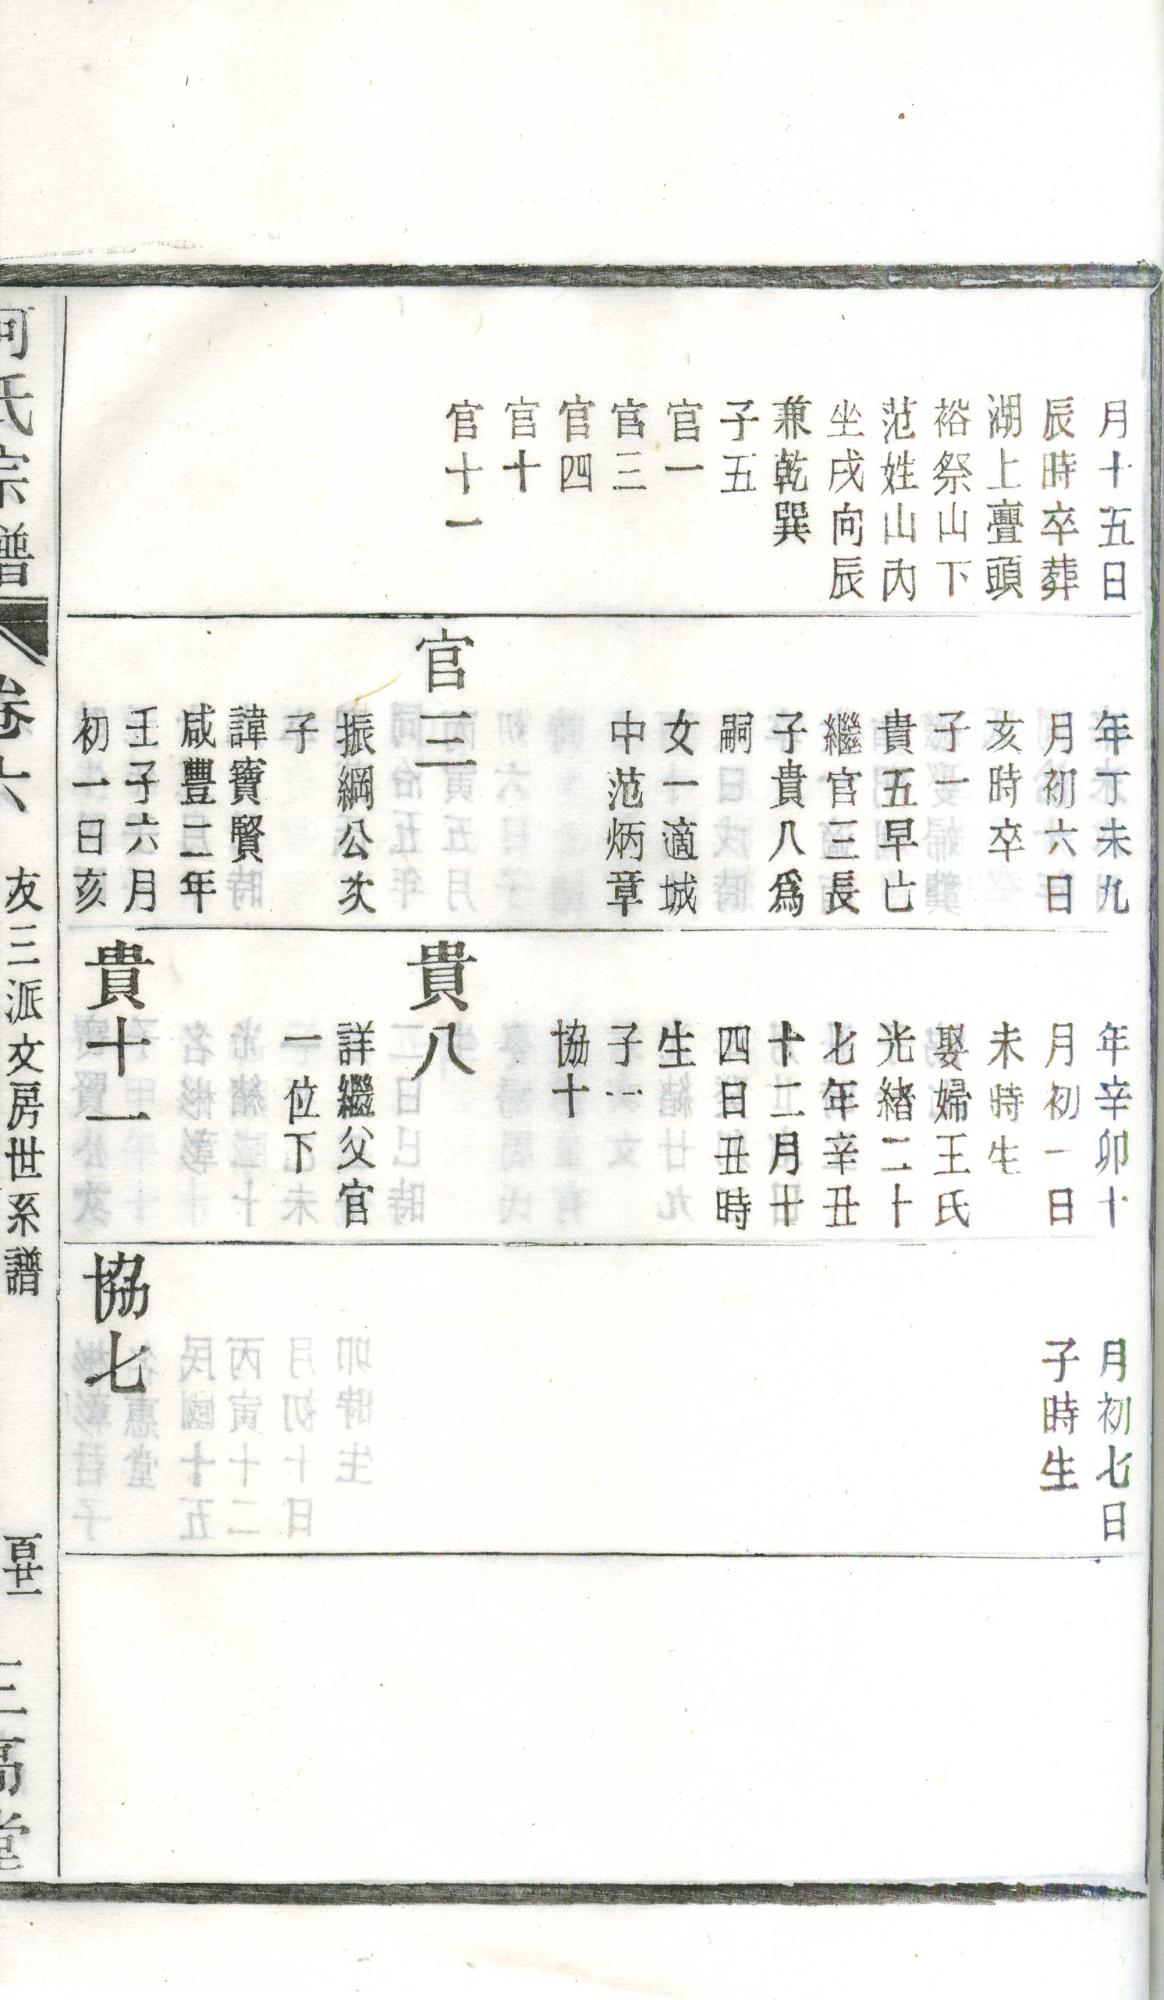 月十五日
辰時卒葬
湖上亹頭
裕祭山下
范姓山內
坐戌向辰
兼乾巽
子五
官一
官三
官四
官十
官十一
年丁未九
月初六日
亥時卒
子一
貴五早亡
繼官三長
子貴八爲
嗣
女一適城
中范炳章
官三
振綱公次
子
諱寶賢
咸豐二年
壬子六月
初一日亥
年辛卯十
月初一日
未時生
娶婦王氏
光緒二十
七年辛丑
十二月廿
四日丑時
生
子一
協十
貴八
詳繼父官
一位下
貴十一
月初七日
子時生
協七
何氏宗譜
卷六
友三派文房世系譜
三高堂